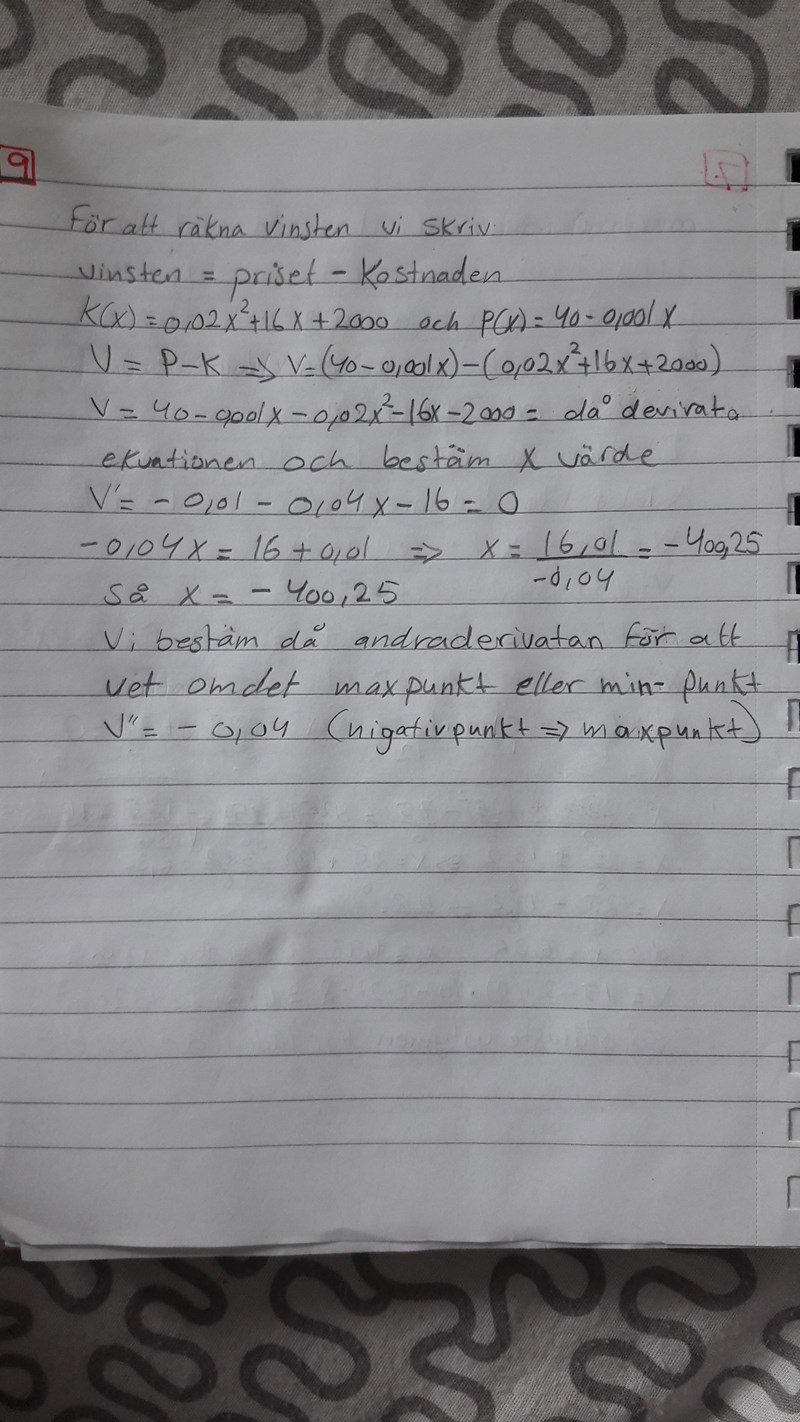 9
7.
För att räkna vinsten vi skriv
vinsten = priset - Kostnaden
K(x) = 0,02x²+16x+2000 och P(x) = 40-0,001x
V = P-K => V=(40-0,001x)-(0,02x²+16x+2000)
V = 40-0,001x-0,02x²-16x-2000 = då devirata
ekvationen och bestäm x värde
V' = -0,01 - 0,04x - 16 = 0
-0,04x = 16 + 0,01 => x = 16,01/-0,04 = -400,25
Så x = -400,25
Vi bestäm då andraderivatan för att
vet omdet maxpunkt eller min- punkt
V" = - 0,04 (nigativpunkt => maxpunkt)